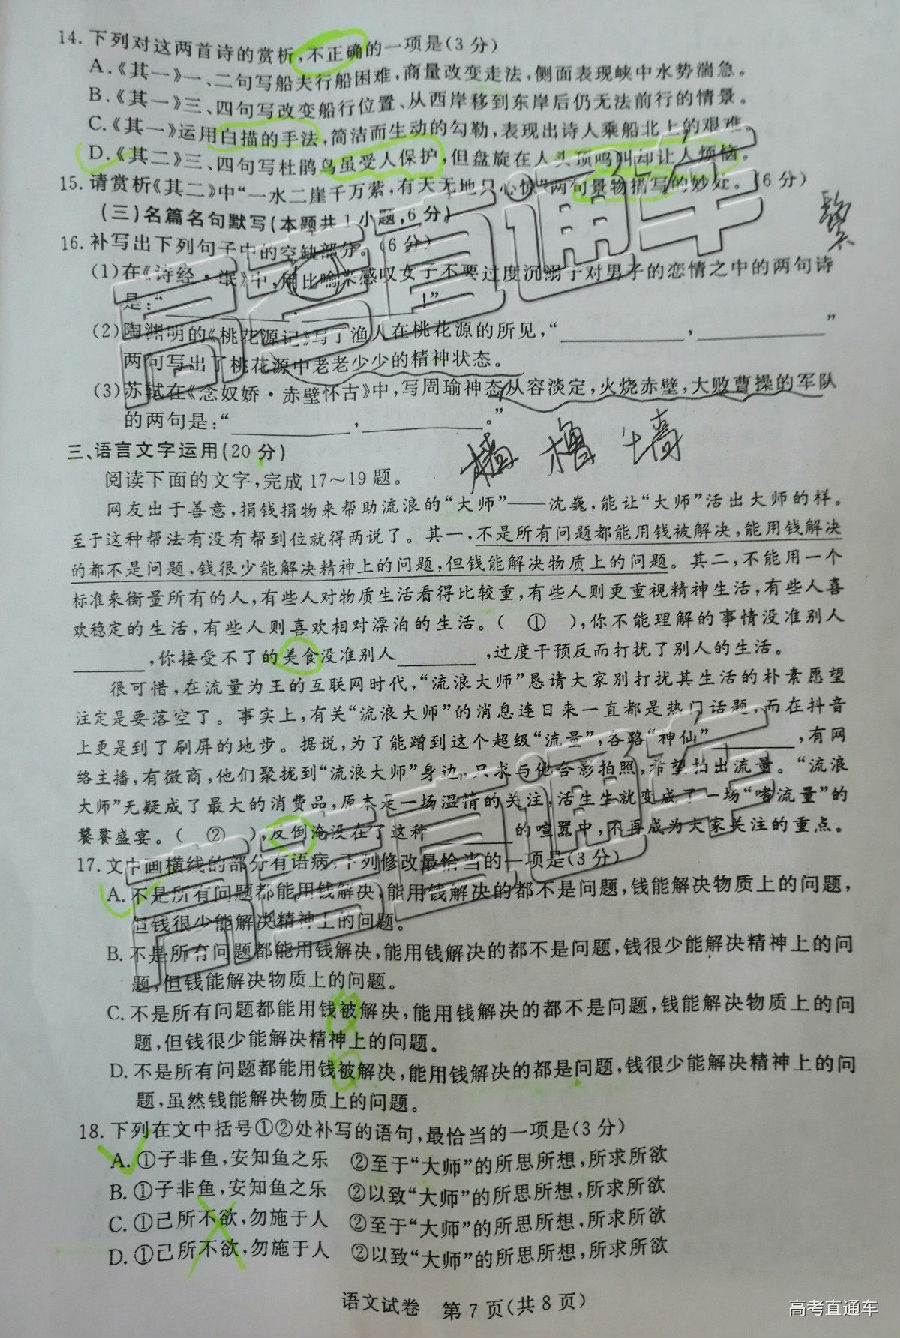 14.下列对这两首诗的赏析,不正确的一项是(3分)
A.《其一》一、二句写船夫行船困难,商量改变走法,侧面表现峡中水势湍急。
B.《其一》三、四句写改变船行位置、从西岸移到东岸后仍无法前行的情景。
C.《其一》运用白描的手法,简洁而生动的勾勒,表现出诗人乘船北上的艰难
D.《其二》三、四句写杜鹃鸟虽受人保护,但盘旋在人头顶鸣叫却让人烦恼。
15.请赏析《其二》中“一水二崖千万萦,有天无地只心惊”两句景物描写的妙处。(6分)
(三)名篇名句默写(本题共1小题,6分)
16.补写出下列句子中的空缺部分。(6分)
(1)在《诗经·氓》中,用比喻来感叹女子不要过度沉溺于对男子的恋情之中的两句诗
是:“ !”
(2)陶渊明的《桃花源记》写了渔人在桃花源的所见,“ , ”
两句写出了桃花源中老老少少的精神状态。
(3)苏轼在《念奴娇·赤壁怀古》中,写周瑜神态从容淡定,火烧赤壁,大败曹操的军队
的两句是:“ , 。”
三、语言文字运用(20分)
阅读下面的文字,完成17～19题。
网友出于善意,捐钱捐物来帮助流浪的“大师”——沈巍,能让“大师”活出大师的样。
至于这种帮法有没有帮到位就得两说了。其一,不是所有问题都能用钱被解决,能用钱解决
的都不是问题,钱很少能解决精神上的问题,但钱能解决物质上的问题。其二,不能用一个
标准来衡量所有的人,有些人对物质生活看得比较重,有些人则更重视精神生活,有些人喜
欢稳定的生活,有些人则喜欢相对漂泊的生活。( ① ),你不能理解的事情没准别人
,你接受不了的美食没准别人 ,过度干预反而打扰了别人的生活。
很可惜,在流量为王的互联网时代,“流浪大师”恳请大家别打扰其生活的朴素愿望
注定是要落空了。事实上,有关“流浪大师”的消息连日来一直都是热门话题,而在抖音
上更是到了刷屏的地步。据说,为了能蹭到这个超级“流量”,各路“神仙” ,有网
络主播,有微商,他们聚拢到“流浪大师”身边,只求与他合影拍照,希望拍出流量。“流浪
大师”无疑成了最大的消费品,原本是一场温情的关注,活生生就变成了一场“嗜流量”的
饕餮盛宴。( ② ),反倒淹没在了这种 的喧嚣中,不再成为大家关注的重点。
17.文中画横线的部分有语病,下列修改最恰当的一项是(3分)
A.不是所有问题都能用钱解决,能用钱解决的都不是问题,钱能解决物质上的问题,
但钱很少能解决精神上的问题。
B.不是所有问题都能用钱解决,能用钱解决的都不是问题,钱很少能解决精神上的问
题,但钱能解决物质上的问题。
C.不是所有问题都能用钱被解决,能用钱解决的都不是问题,钱能解决物质上的问
题,但钱很少能解决精神上的问题。
D.不是所有问题都能用钱被解决,能用钱解决的都是问题,钱很少能解决精神上的问
题,虽然钱能解决物质上的问题。
18.下列在文中括号①②处补写的语句,最恰当的一项是(3分)
A.①子非鱼,安知鱼之乐 ②至于“大师”的所思所想,所求所欲
B.①子非鱼,安知鱼之乐 ②以致“大师”的所思所想,所求所欲
C.①己所不欲,勿施于人 ②至于“大师”的所思所想,所求所欲
D.①己所不欲,勿施于人 ②以致“大师”的所思所想,所求所欲
语文试卷 第7页(共8页)
高考直通车
高考直通车
高考直通车